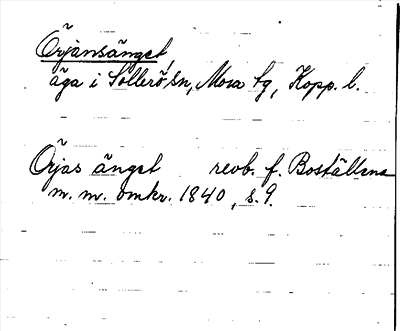 Örjansänget,
äga i Sollerö sn, Mora tg, Kopp. l.
Örjas änget revb. f. Boställena
m. m. omkr. 1840, s. 9.